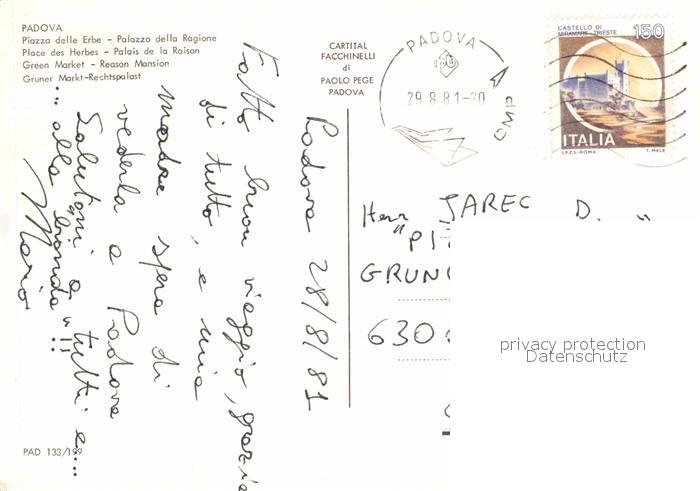 PADOVA
Piazza delle Erbe - Palazzo della Ragione
Place des Herbes - Palais de la Raison
Green Market - Reason Mansion
Gruner Markt-Rechtspalast
CARTITAL
FACCHINELLI
di
PAOLO PEGE
PADOVA
PADOVA
CMP
29.8.81-20
CASTELLO DI
MIRAMARE-TRIESTE
150
ITALIA
I.P.Z.S.-ROMA T. MIELE
Padova 28/8/81
Fatto buon viaggio, grazie
di tutto, e mia
madre spera di
vederla a Padova
Salutoni a tutti e...
... alla "bionda"!!
Mario
Herr JAREC D. "
"PI
GRUN
630
privacy protection
Datenschutz
PAD 133/199